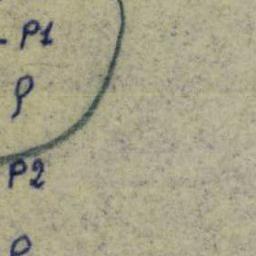 - P1
ρ
P2
ρ